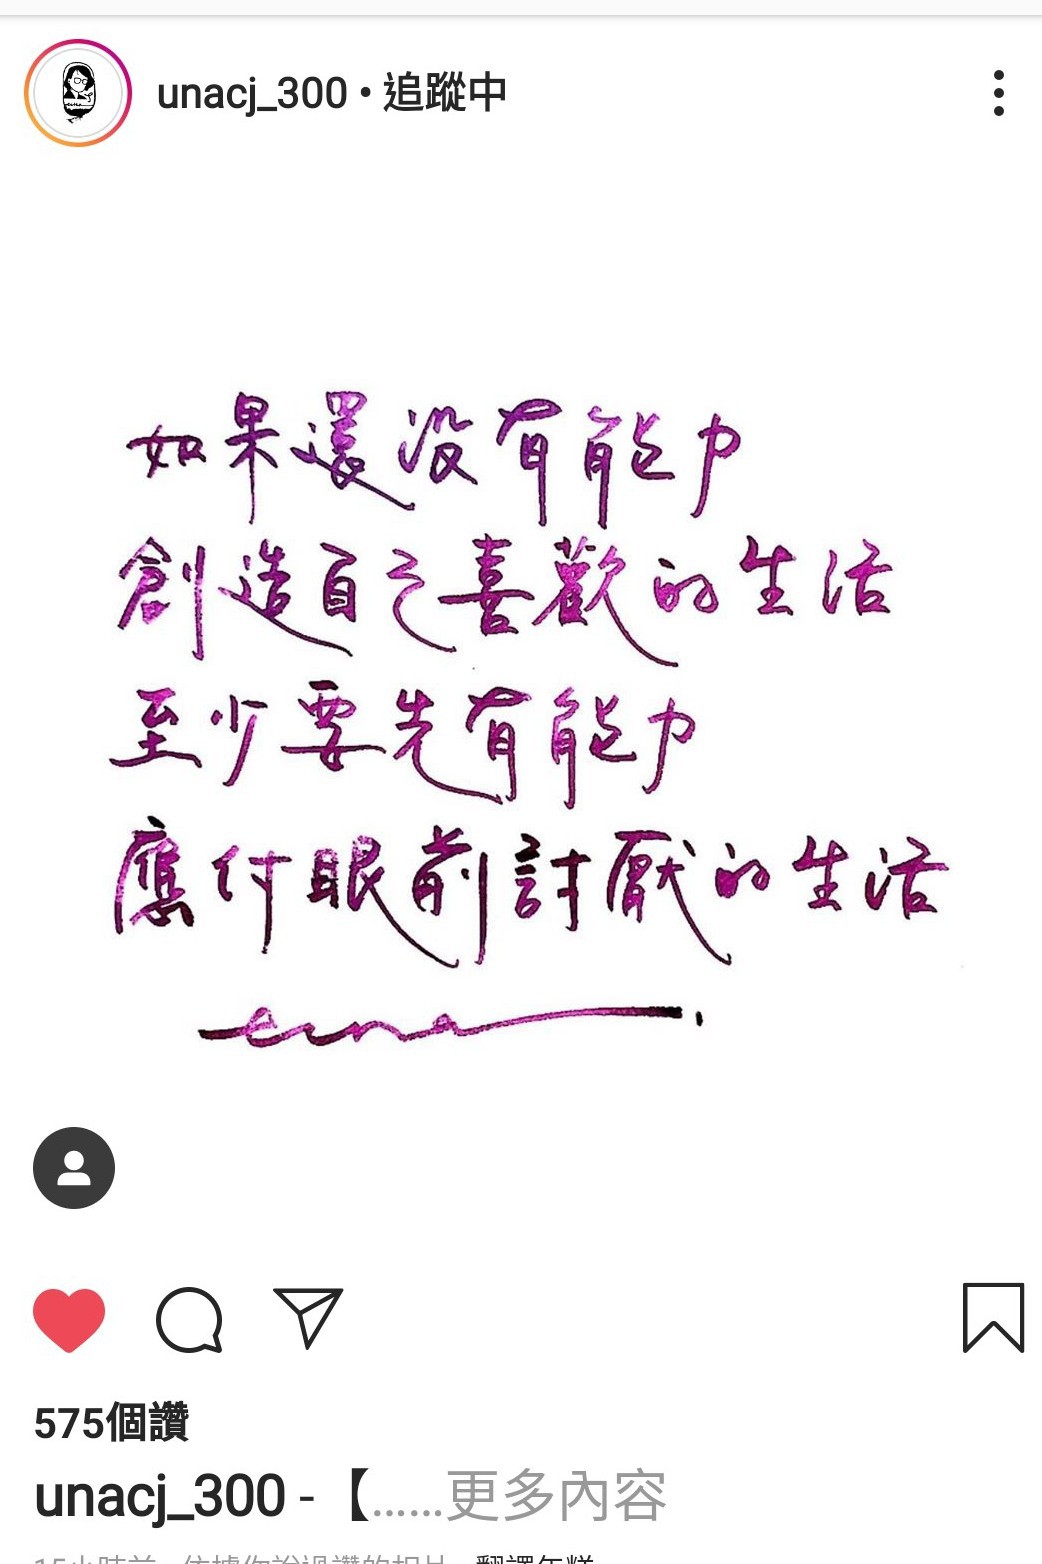 unacj_300 • 追蹤中
如果還沒有能力
創造自己喜歡的生活
至少要先有能力
應付眼前討厭的生活
una
575個讚
unacj_300 - 【......更多內容